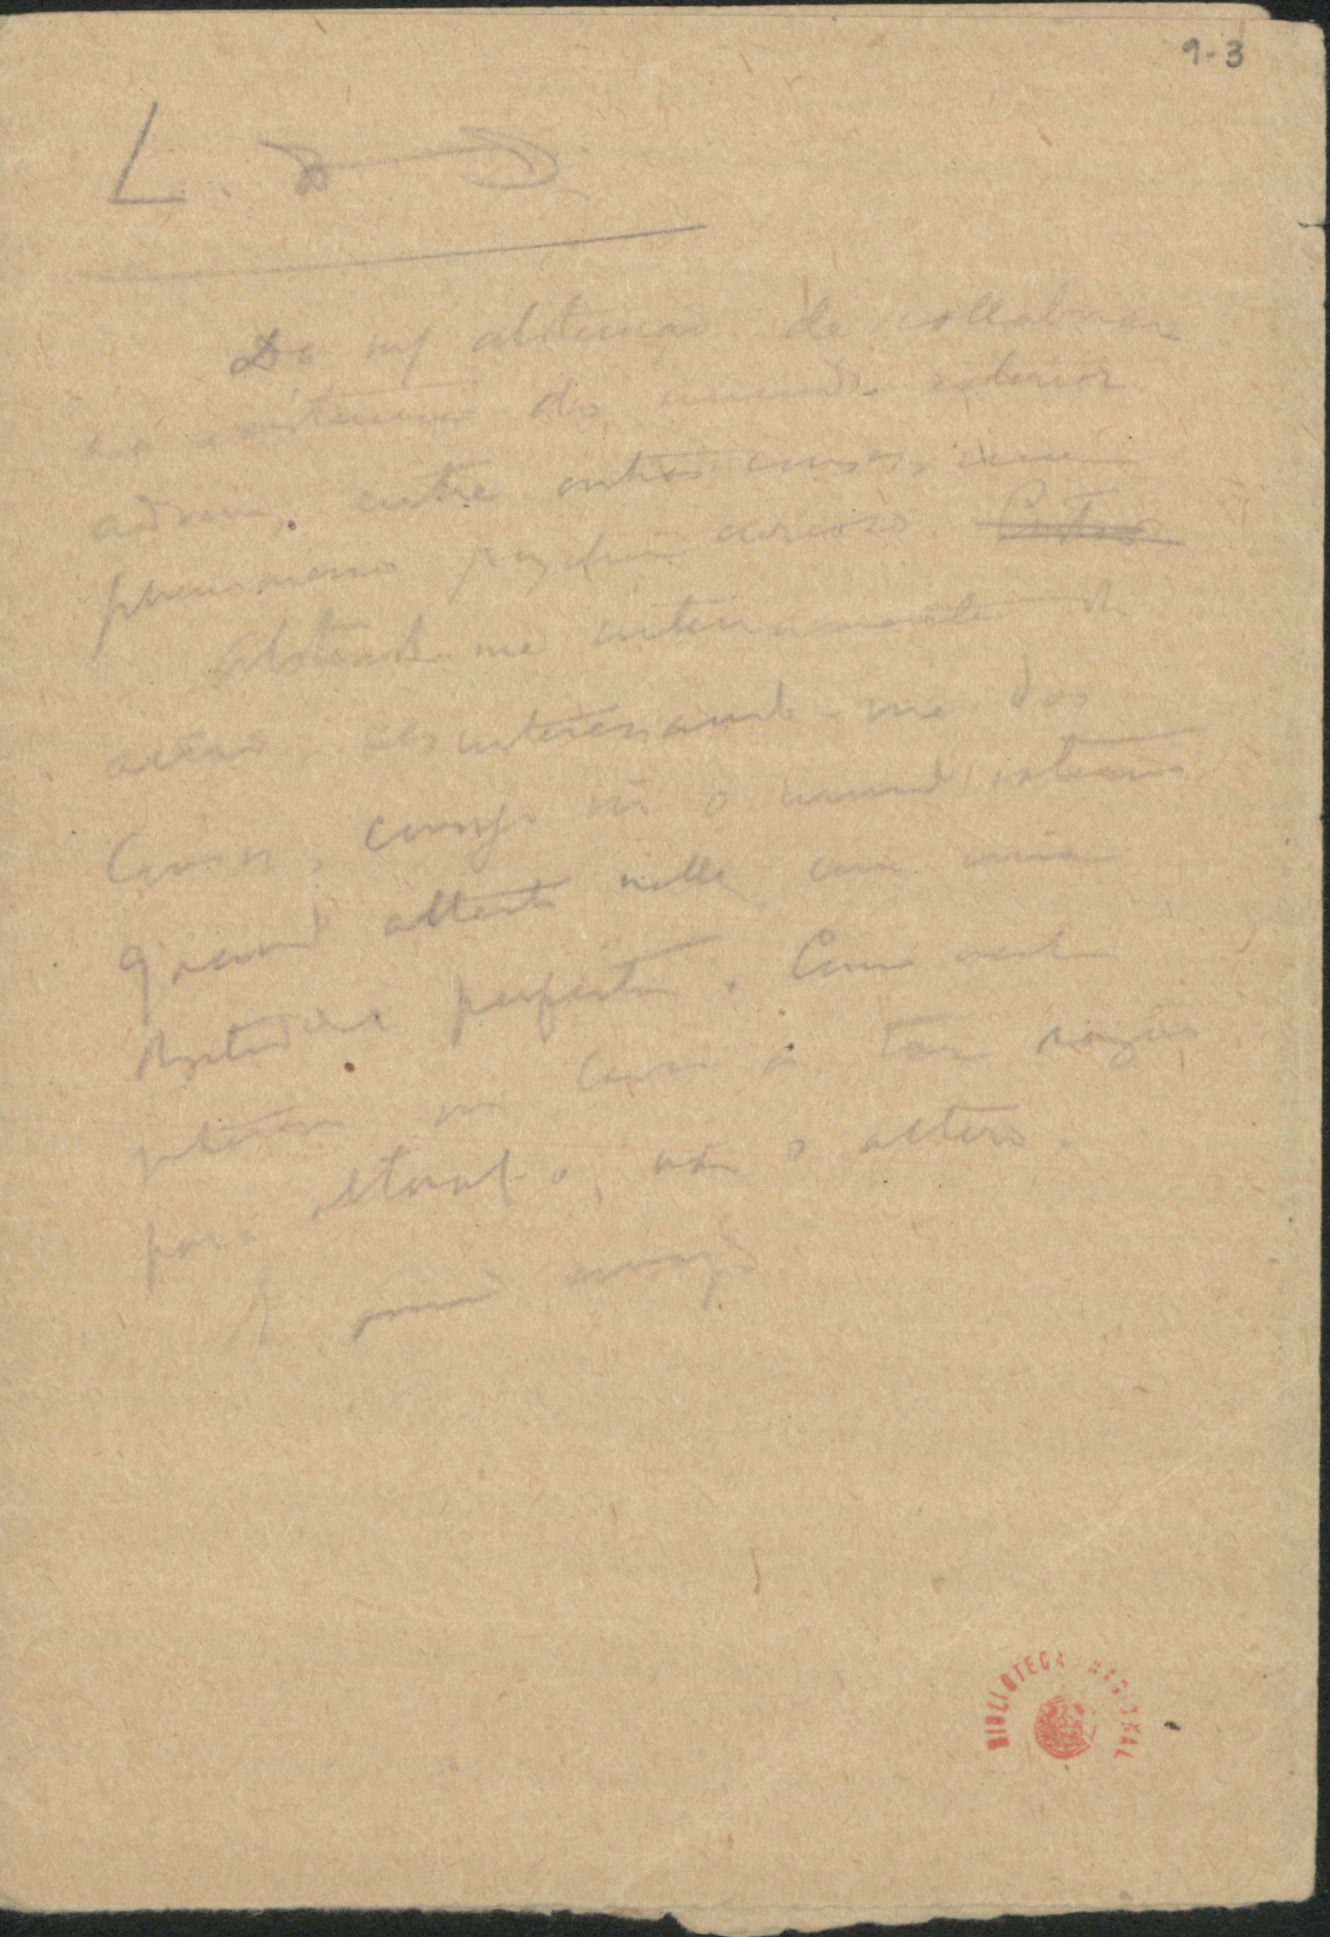 9-3
L. do D.
Da m/ abstenção de collaborar
na existencia do mundo exterior
advem, entre outras cousas, um
phenomeno psychico curioso.
Abstendo-me inteiramente da
acção, desinteressando-me das
Cousas, consigo ver o mundo exterior
quando attento nelle com uma
objectividade perfeita. Como nada
interessa ou leva a ter razão
para alteral-o, não o altero.
E assim consigo
BIBLIOTECA NACIONAL